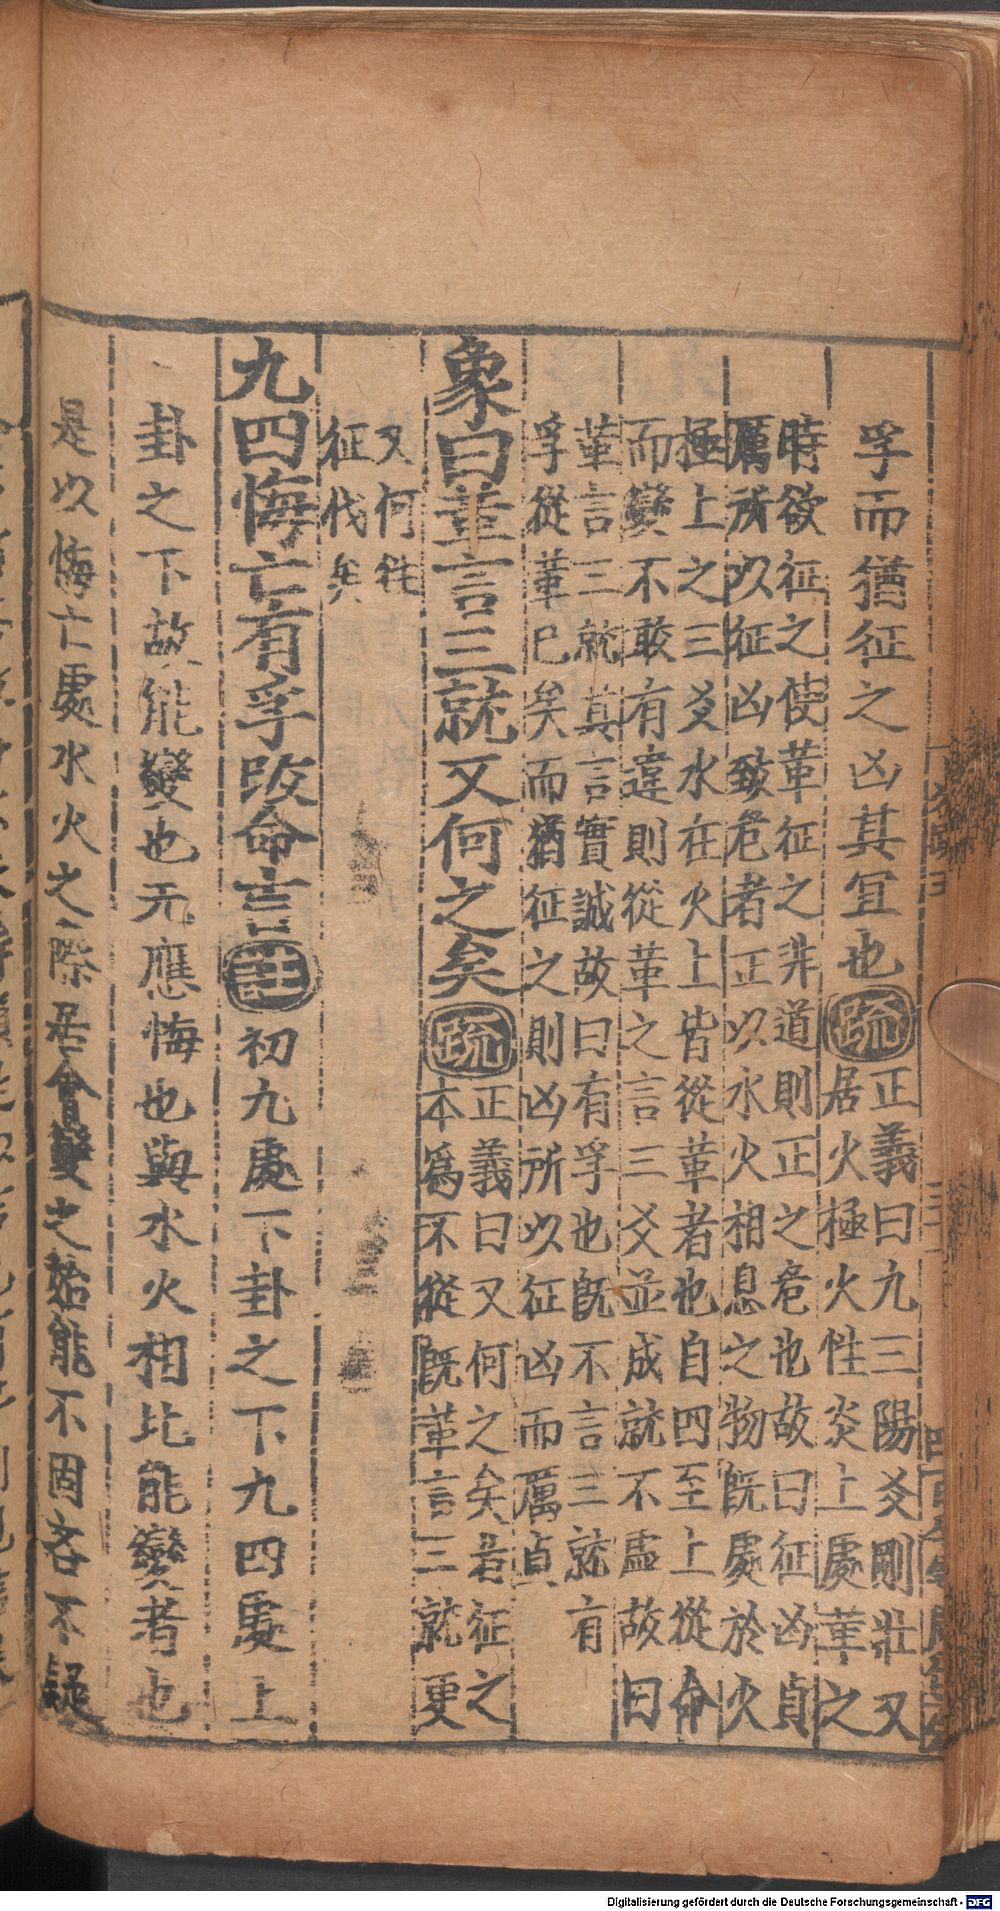 孚而猶征之凶其宜也疏正義曰九三陽爻剛壯又
居火極火性炎上處革之
時欲征之使革征之非道則正之危也故曰征凶貞
厲所以征凶致危者正以水火相息之物既處於火
極上之三爻水在火上皆從革者也自四至上從命
而變不敢有違則從革之言三爻並成就不虛故曰
革言三就真言實誠故曰有孚也既不言三就有
孚從革已矣而猶征之則凶所以征凶而厲貞
象曰革言三就又何之矣疏正義曰又何之矣者征之
本爲不從既革言三就更
又何往
征伐矣
九四悔亡有孚改命吉註初九處下卦之下九四處上
卦之下故能變也无應悔也與水火相比能變者也
是以悔亡處水火之際居會變之始能不固吝不疑
Digitalisierung gefördert durch die Deutsche Forschungsgemeinschaft - DFG